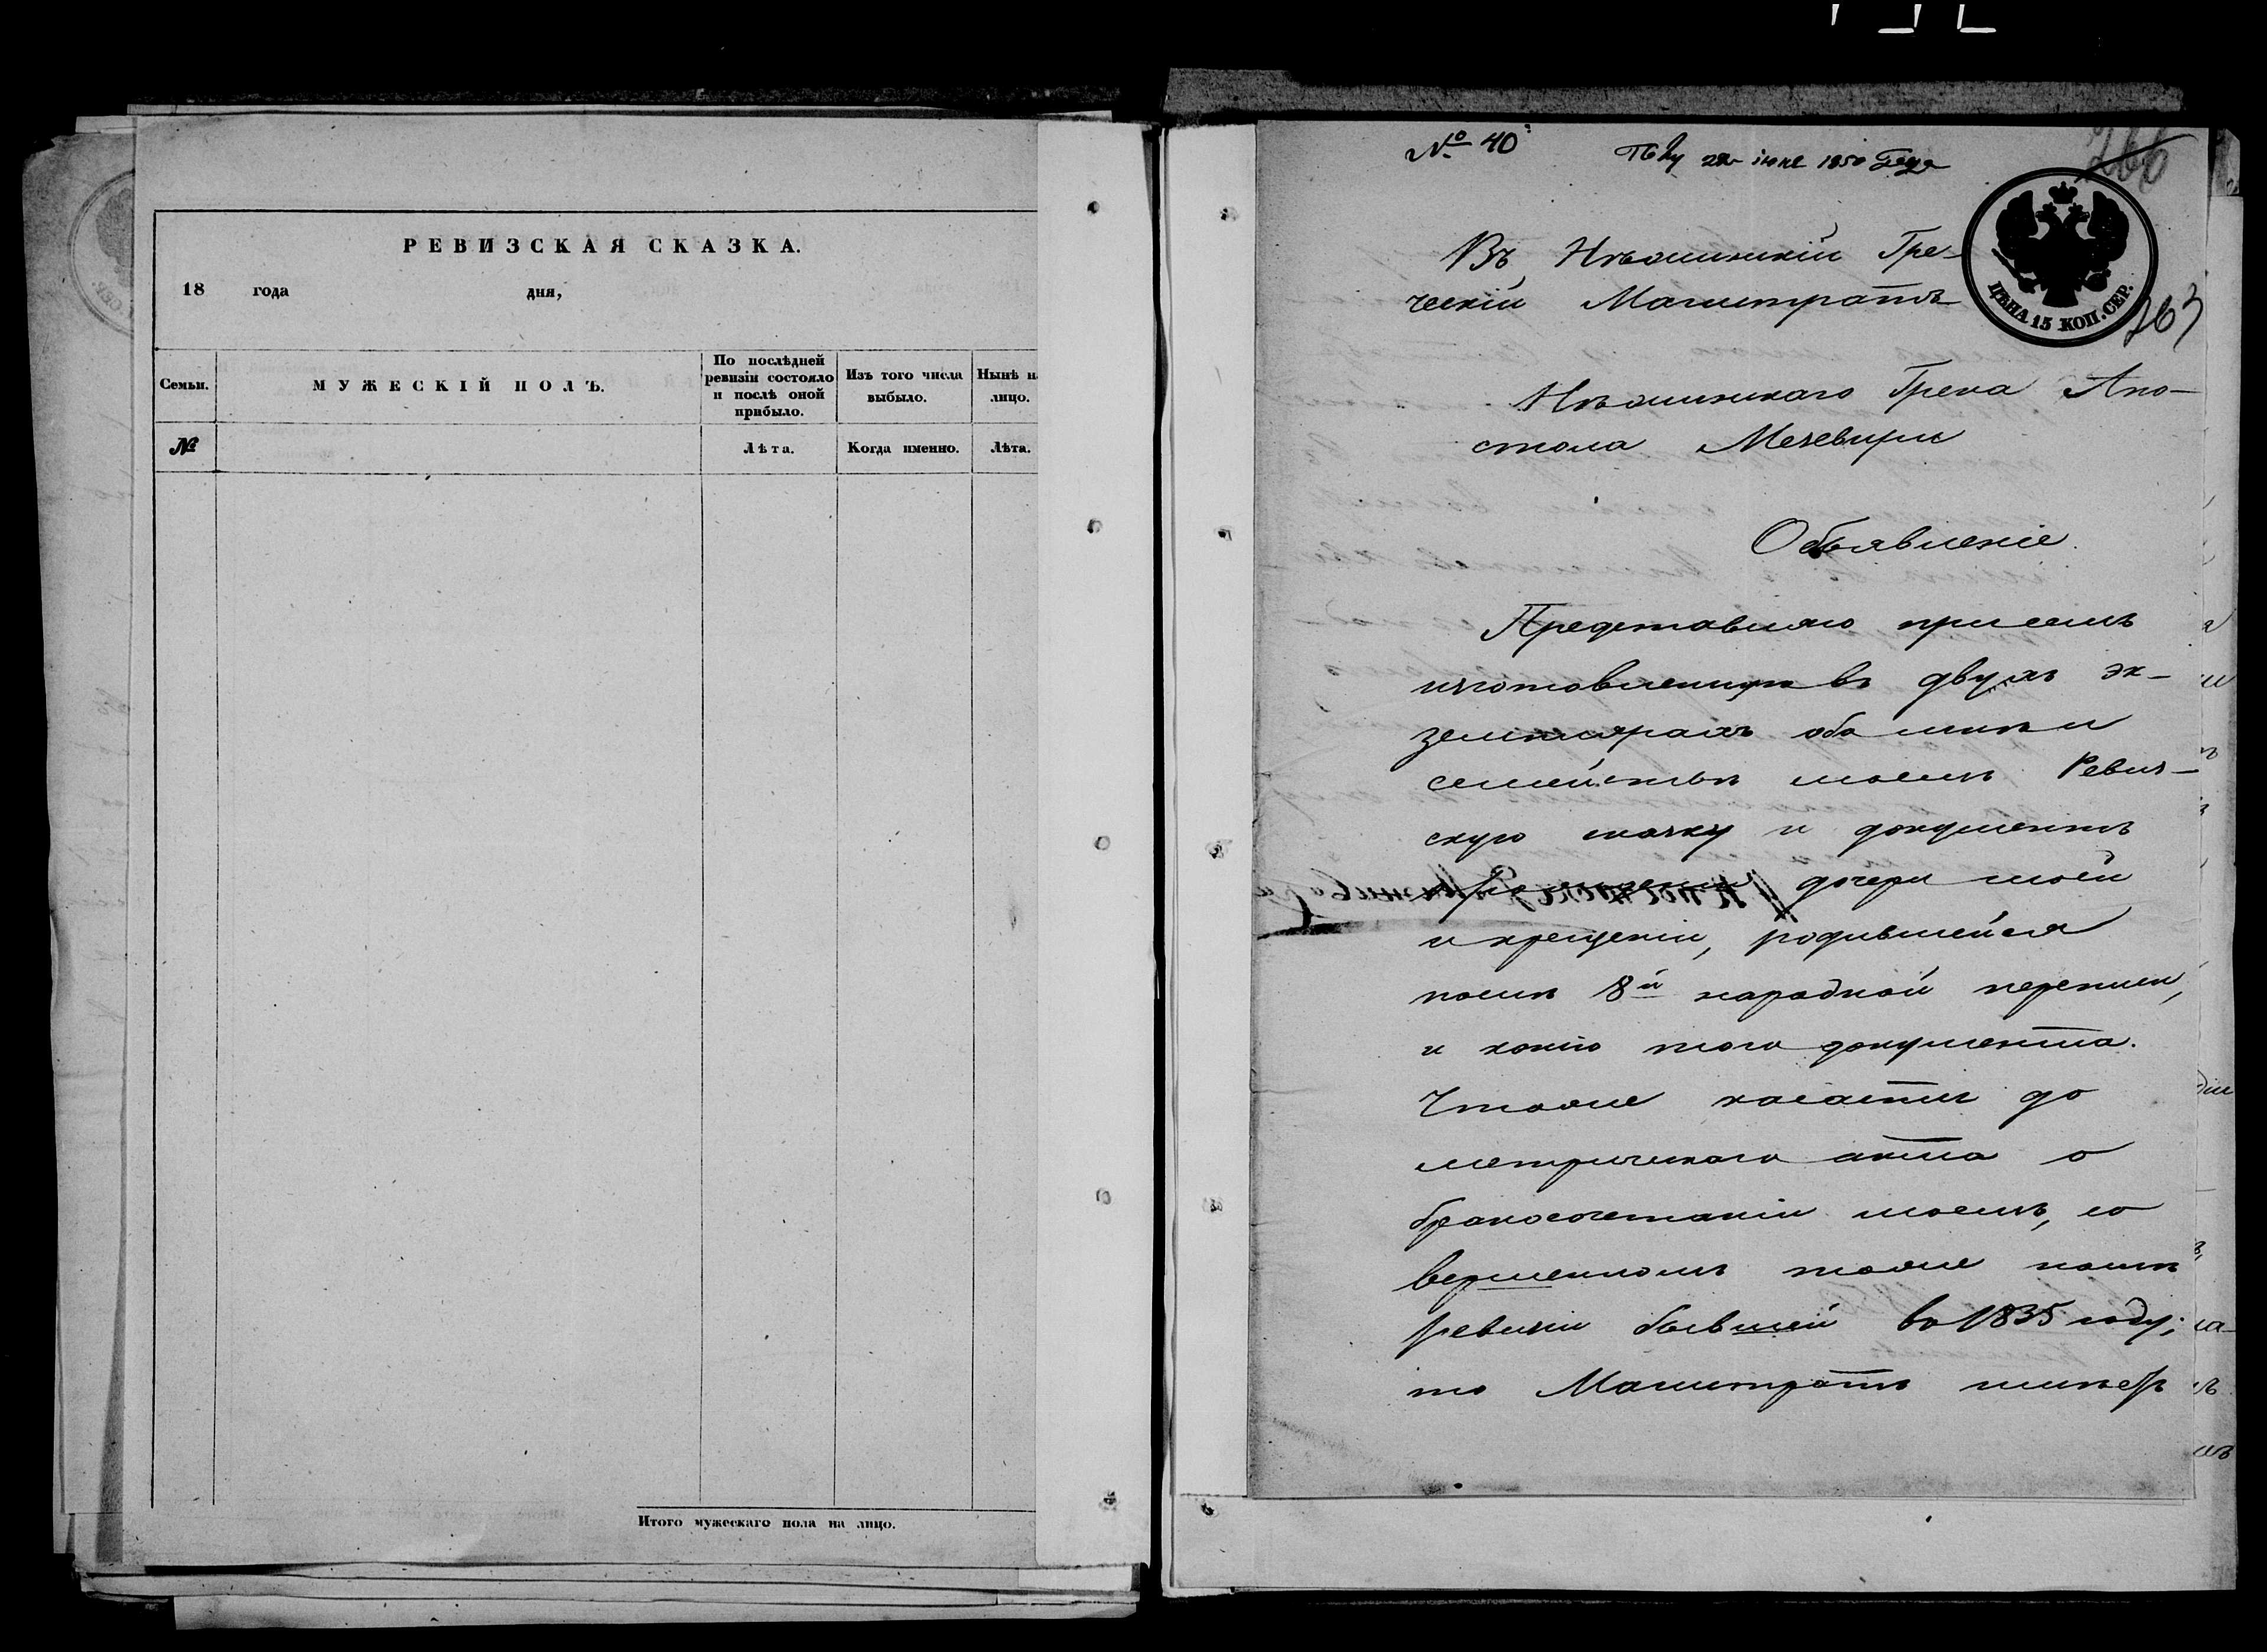 РЕВИЗСКАЯ СКАЗКА.
18 года дня,
Семьи.
МУЖЕСКІЙ ПОЛЪ.
По послѣдней ревизіи состояло и послѣ оной прибыло.
Изъ того числа выбыло.
Нынѣ н
лицо.
№
Лѣта.
Когда именно.
Лѣта.
Итого мужескаго пола на лицо.
№ 40
22 іюня 1850 года
266
ЦѢНА 15 КОП. СЕР.
263
Въ Нѣжинскій Гре-
ческій Магистратъ
Нѣжинскаго Грека Апо-
стола
Объявленіе.
Представляю при семъ
изготовленную въ двухъ эк-
земплярахъ обо мнѣ и
семействѣ моемъ Ревиз-
скую сказку и документъ
о рожденіи дочери моей
и крещеніи, родившейся
послѣ 8й народной переписи,
и копію того документа.
Чтоже касается до
метрическаго акта о
бракосочетаніи моемъ, со
вершенномъ тоже послѣ
ревизіи бывшей въ 1835 году;
то Магистратъ